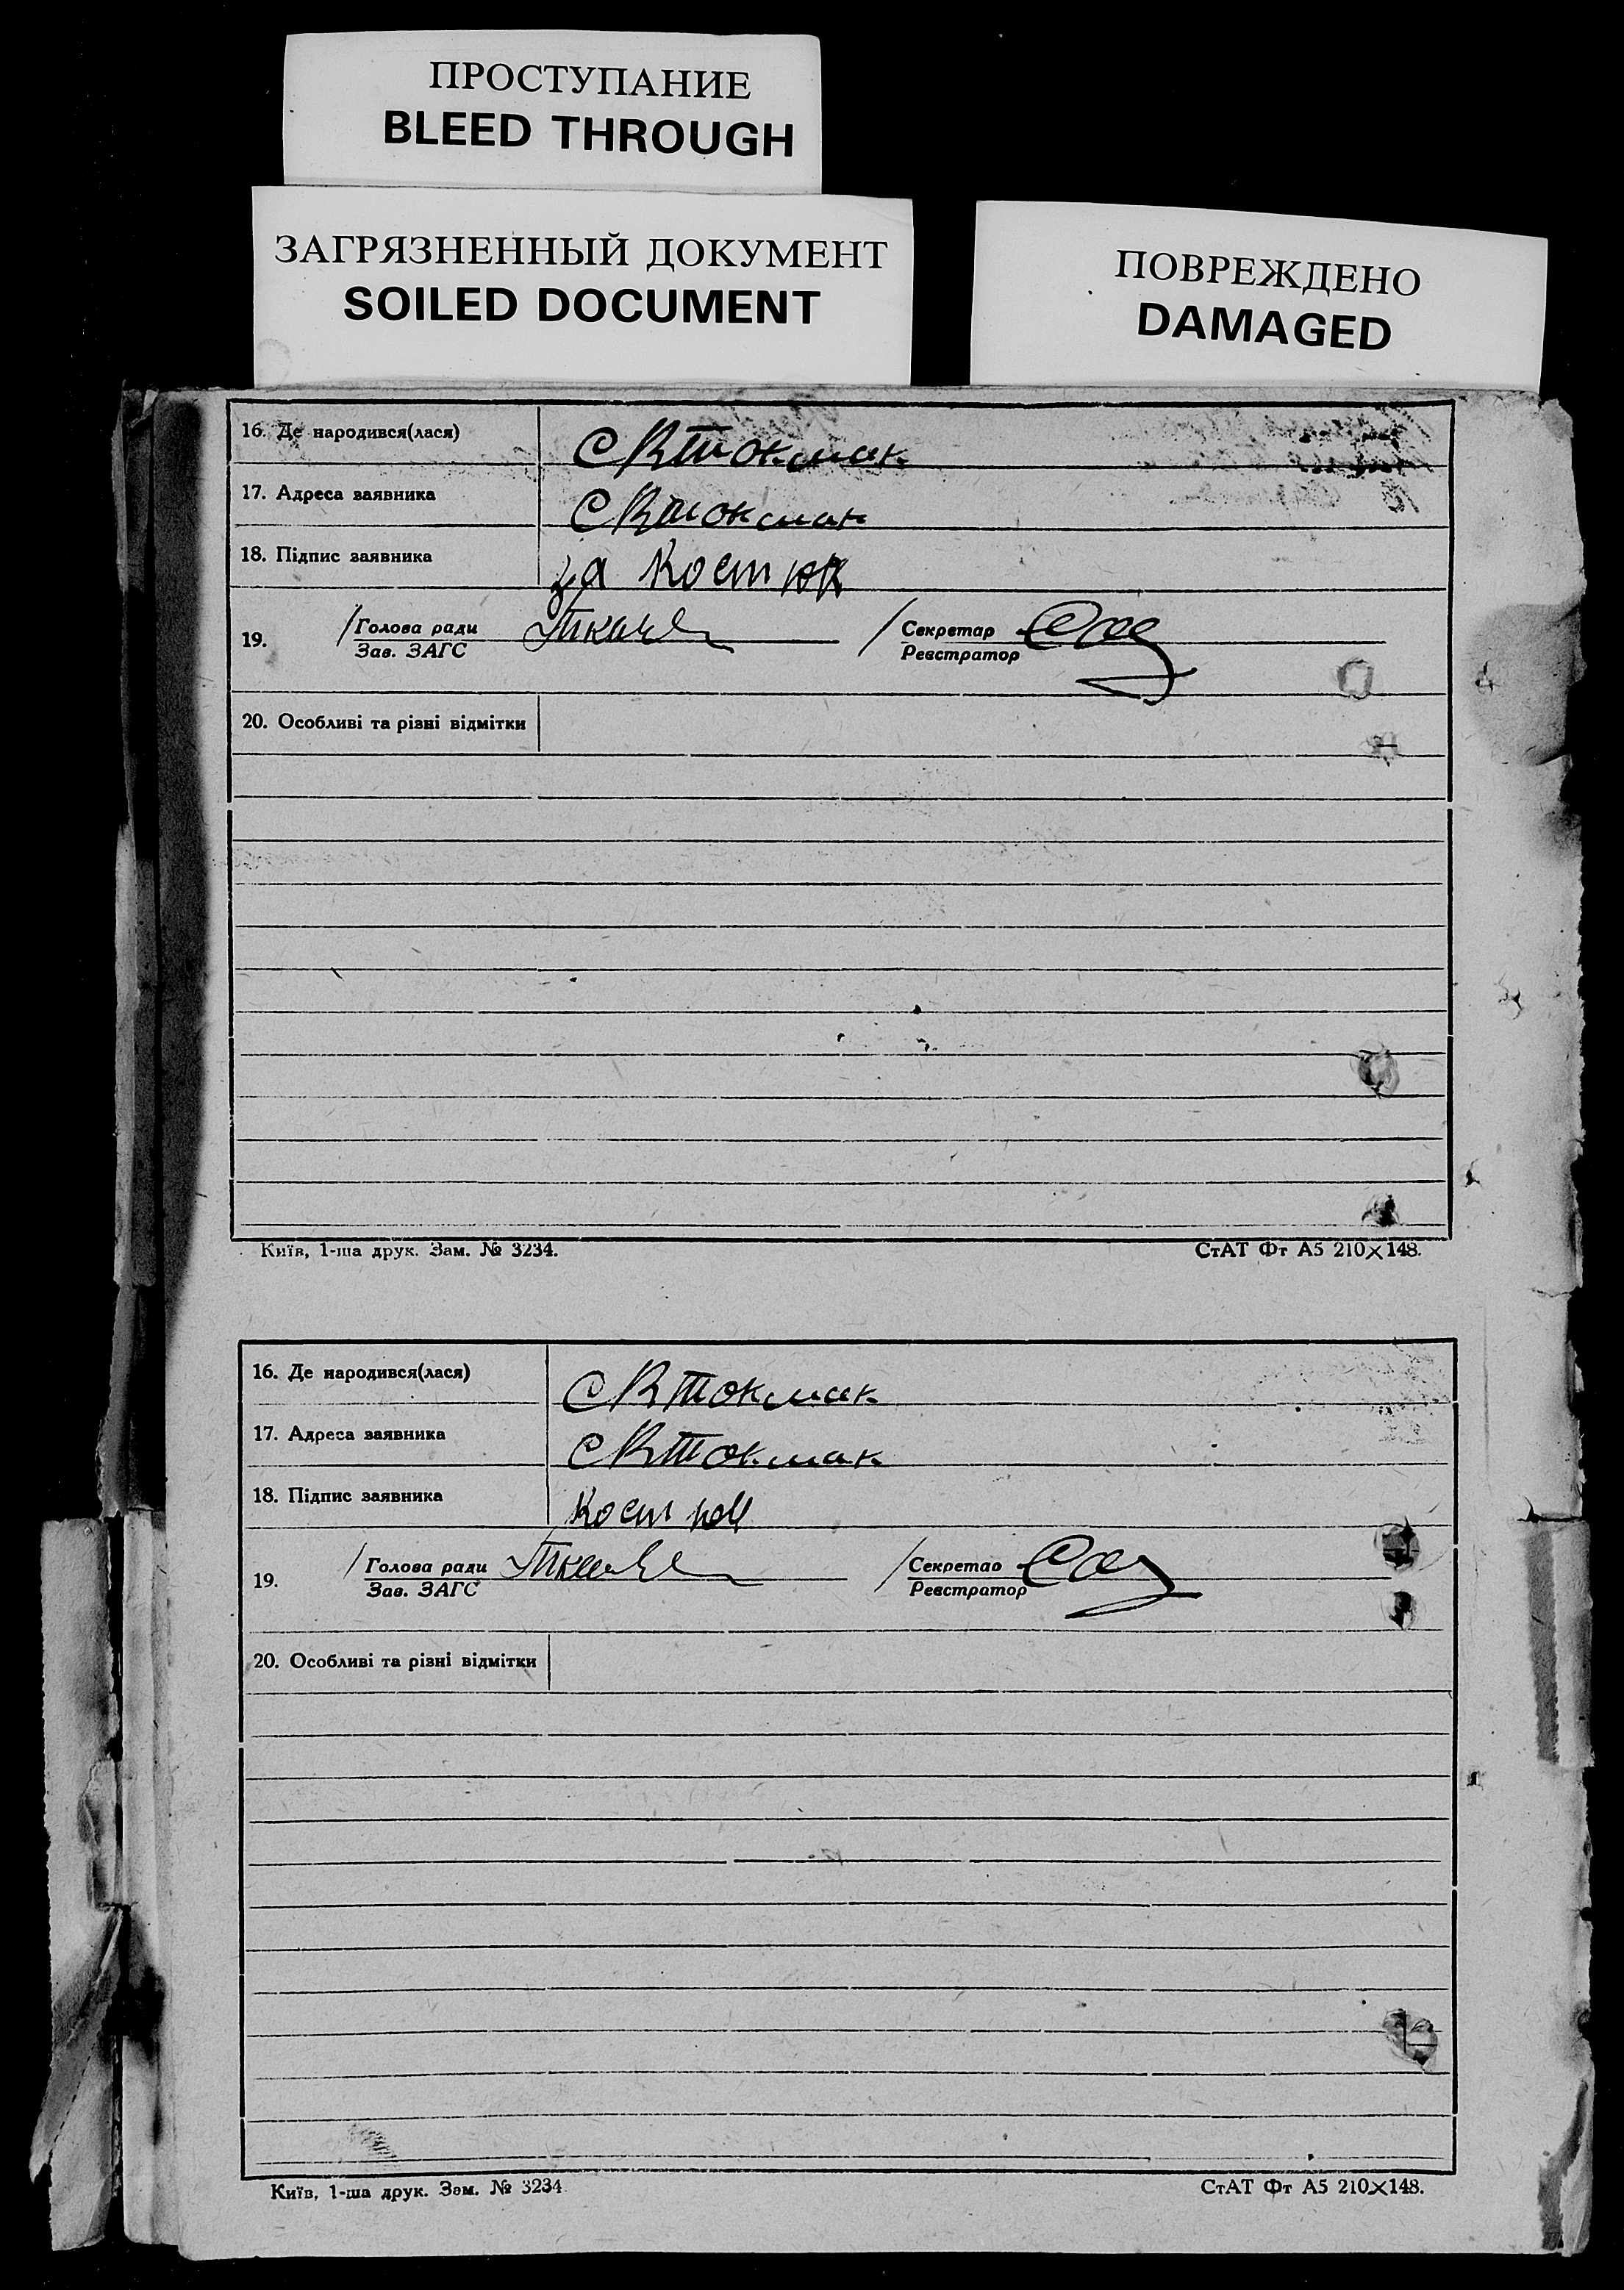 ПРОСТУПАНИЕ
BLEED THROUGH
ЗАГРЯЗНЕННЫЙ ДОКУМЕНТ
SOILED DOCUMENT
ПОВРЕЖДЕНО
DAMAGED
16. Де народився(лася) С Вток­мак
17. Адреса заявника С Втокмак
18. Підпис заявника за Костюк
19. / Голова ради / Секретар
Зав. ЗАГС Реєстратор
20. Особливі та різні відмітки
Київ, 1-ша друк. Зам. № 3234. СтАТ Фт А5 210×148.
16. Де народився(лася) С Втокмак
17. Адреса заявника С Втокмак
18. Підпис заявника Костюк
19. / Голова ради / Секретар
Зав. ЗАГС Реєстратор
20. Особливі та різні відмітки
Київ, 1-ша друк. Зам. № 3234 СтАТ Фт А5 210×148.